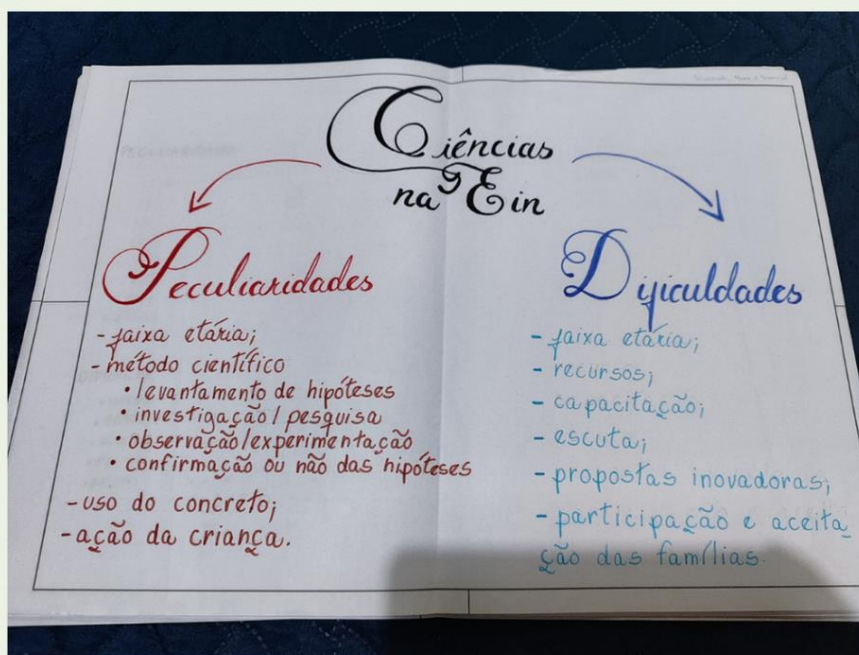 Ciências
na Ein
Peculiaridades
- faixa etária;
- método científico
• levantamento de hipóteses
• investigação/pesquisa
• observação/experimentação
• confirmação ou não das hipóteses
- uso do concreto;
- ação da criança.
Dificuldades
- faixa etária;
- recursos;
- capacitação;
- escuta;
- propostas inovadoras;
- participação e aceita
ção das famílias.